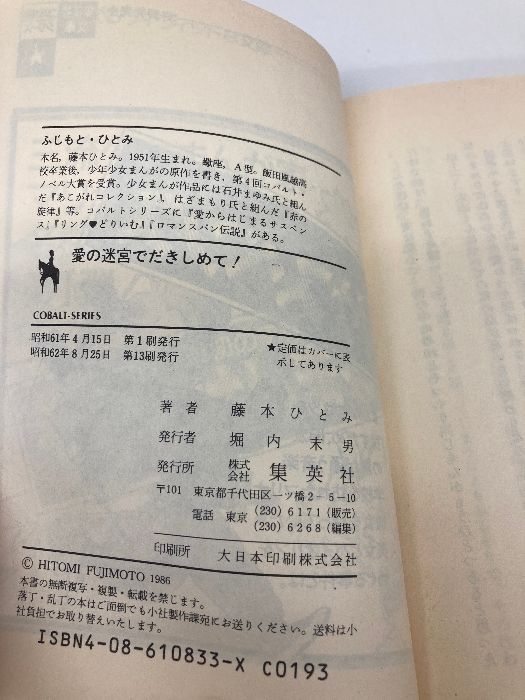 ふじもと・ひとみ
本名，藤本ひとみ。1951年生まれ。蠍座，A型。飯田風越高
校卒業後，少年少女まんがの原作を書き，第4回コバルト・
ノベル大賞を受賞。少女まんが作品には石井まゆみ氏と組ん
だ『あこがれコレクション』，はざまもり氏と組んだ『赤の
旋律』等。コバルトシリーズに『愛からはじまるサスペン
ス』『リング♥どりいむ』『ロマンスパン伝説』がある。
愛の迷宮でだきしめて！
COBALT-SERIES
昭和61年4月15日 第1刷発行
昭和62年8月25日 第13刷発行
★定価はカバーに表
示してあります
著者 藤本ひとみ
発行者 堀内末男
発行所 株式会社 集英社
〒101 東京都千代田区一ツ橋2－5－10
電話 東京 (230) 6171 (販売)
(230) 6268 (編集)
印刷所 大日本印刷株式会社
© HITOMI FUJIMOTO 1986
本書の無断複写・複製・転載を禁じます。
落丁・乱丁の本はご面倒でも小社製作課宛にお送りください。送料は小
社負担でお取り替えいたします。
ISBN4-08-610833-X C0193